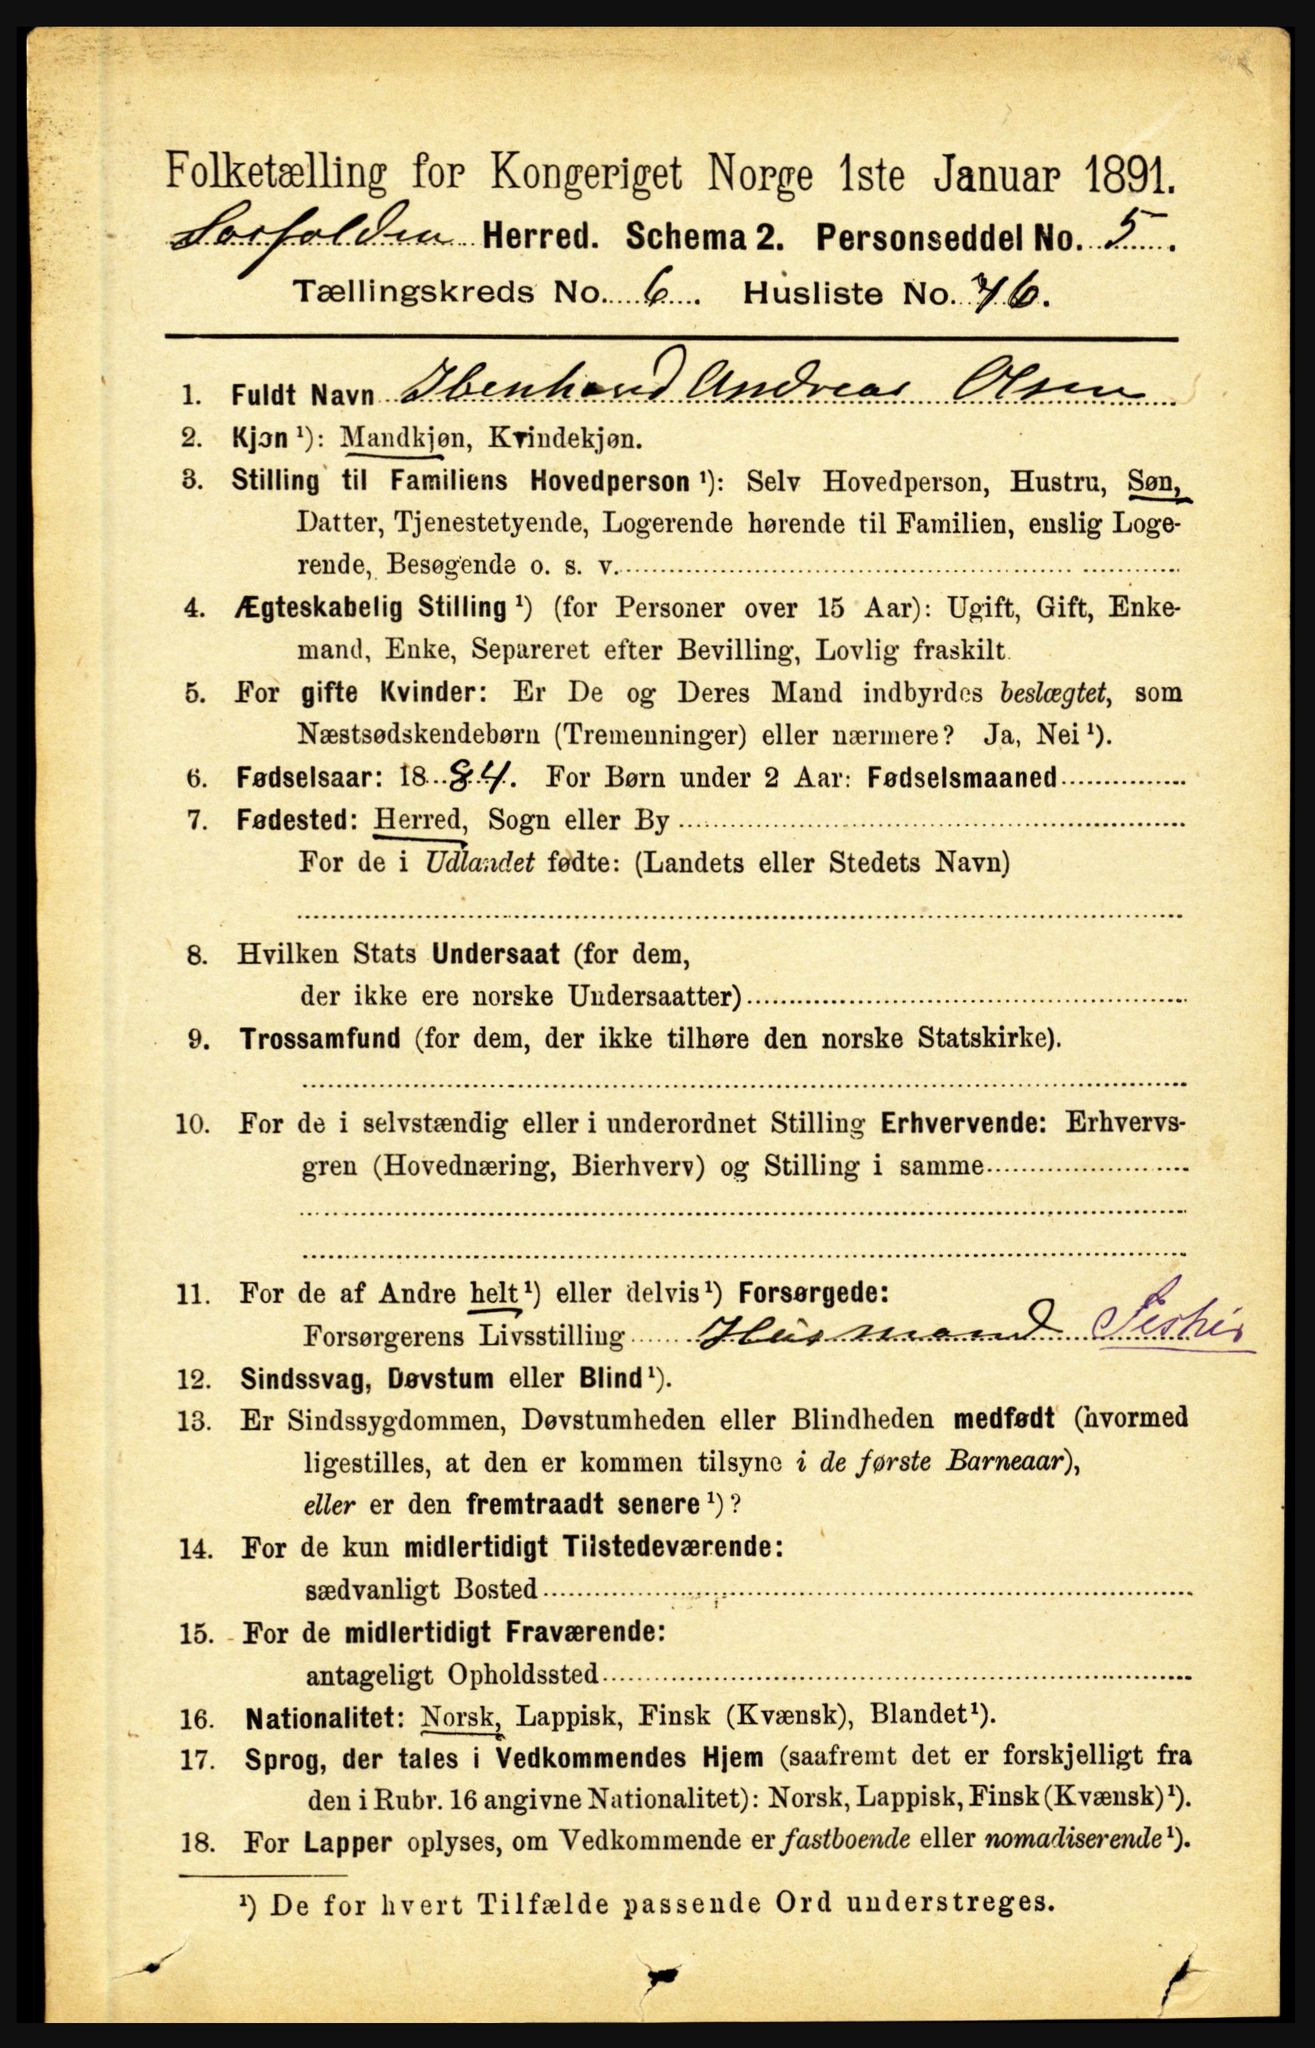 Folketælling for Kongeriget Norge 1ste Januar 1891.
Sørfolden Herred. Schema 2. Personseddel No. 5.
Tællingskreds No. 6. Husliste No. 46.
1. Fuldt Navn Ibenhard Andreas Olsen
2. Kjøn¹): Mandkjøn, Kvindekjøn.
3. Stilling til Familiens Hovedperson¹): Selv Hovedperson, Hustru, Søn,
Datter, Tjenestetyende, Logerende hørende til Familien, enslig Loge-
rende, Besøgende o. s. v.
4. Ægteskabelig Stilling¹) (for Personer over 15 Aar): Ugift, Gift, Enke-
mand, Enke, Separeret efter Bevilling, Lovlig fraskilt
5. For gifte Kvinder: Er De og Deres Mand indbyrdes beslægtet, som
Næstsødskendebørn (Tremenninger) eller nærmere? Ja, Nei¹).
6. Fødselsaar: 1884. For Børn under 2 Aar: Fødselsmaaned
7. Fødested: Herred, Sogn eller By
For de i Udlandet fødte: (Landets eller Stedets Navn)
8. Hvilken Stats Undersaat (for dem,
der ikke ere norske Undersaatter)
9. Trossamfund (for dem, der ikke tilhøre den norske Statskirke).
10. For de i selvstændig eller i underordnet Stilling Erhvervende: Erhvervs-
gren (Hovednæring, Bierhverv) og Stilling i samme
11. For de af Andre helt¹) eller delvis¹) Forsørgede:
Forsørgerens Livsstilling Husmand Fisher
12. Sindssvag, Døvstum eller Blind¹).
13. Er Sindssygdommen, Døvstumheden eller Blindheden medfødt (hvormed
ligestilles, at den er kommen tilsyne i de første Barneaar),
eller er den fremtraadt senere¹)?
14. For de kun midlertidigt Tilstedeværende:
sædvanligt Bosted
15. For de midlertidigt Fraværende:
antageligt Opholdssted
16. Nationalitet: Norsk, Lappisk, Finsk (Kvænsk), Blandet¹).
17. Sprog, der tales i Vedkommendes Hjem (saafremt det er forskjelligt fra
den i Rubr. 16 angivne Nationalitet): Norsk, Lappisk, Finsk (Kvænsk)¹).
18. For Lapper oplyses, om Vedkommende er fastboende eller nomadiserende¹).
¹) De for hvert Tilfælde passende Ord understreges.